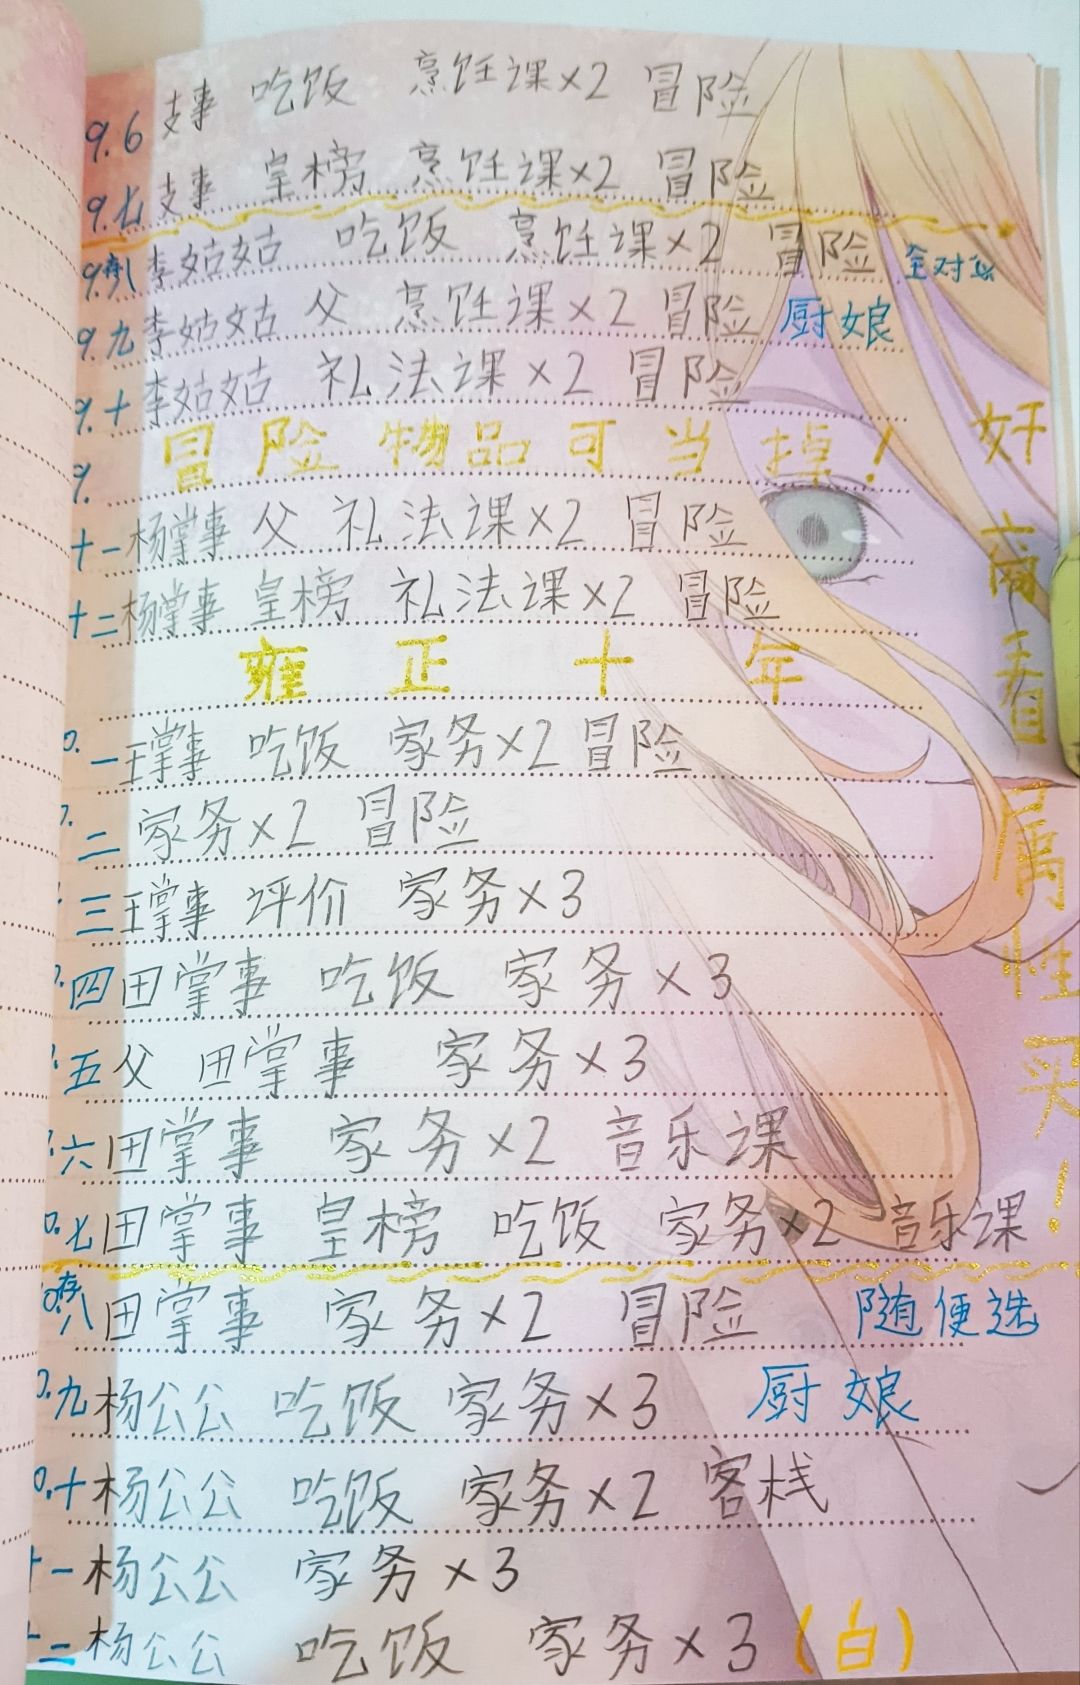 9.6 支事 吃饭 烹饪课×2 冒险
9.七 支事 皇榜 烹饪课×2 冒险
9.存八 李姑姑 吃饭 烹饪课×2 冒险 全对
9.九 李姑姑 父 烹饪课×2 冒险 厨娘
9.十 李姑姑 礼法课×2 冒险
9. 冒险物品可当掉!
十一 杨掌事 父 礼法课×2 冒险
十二 杨掌事 皇榜 礼法课×2 冒险
雍正十年
0.一 王掌事 吃饭 家务×2 冒险
二 家务×2 冒险
三 王掌事 评价 家务×3
四 田掌事 吃饭 家务×3
五 父 田掌事 家务×3
六 田掌事 家务×2 音乐课
0.七 田掌事 皇榜 吃饭 家务×2 音乐课
0.存八 田掌事 家务×2 冒险 随便选
0.九 杨公公 吃饭 家务×3 厨娘
0.十 杨公公 吃饭 家务×2 客栈
十一 杨公公 家务×3
十二 杨公公 吃饭 家务×3(白)
奸商看属性买!